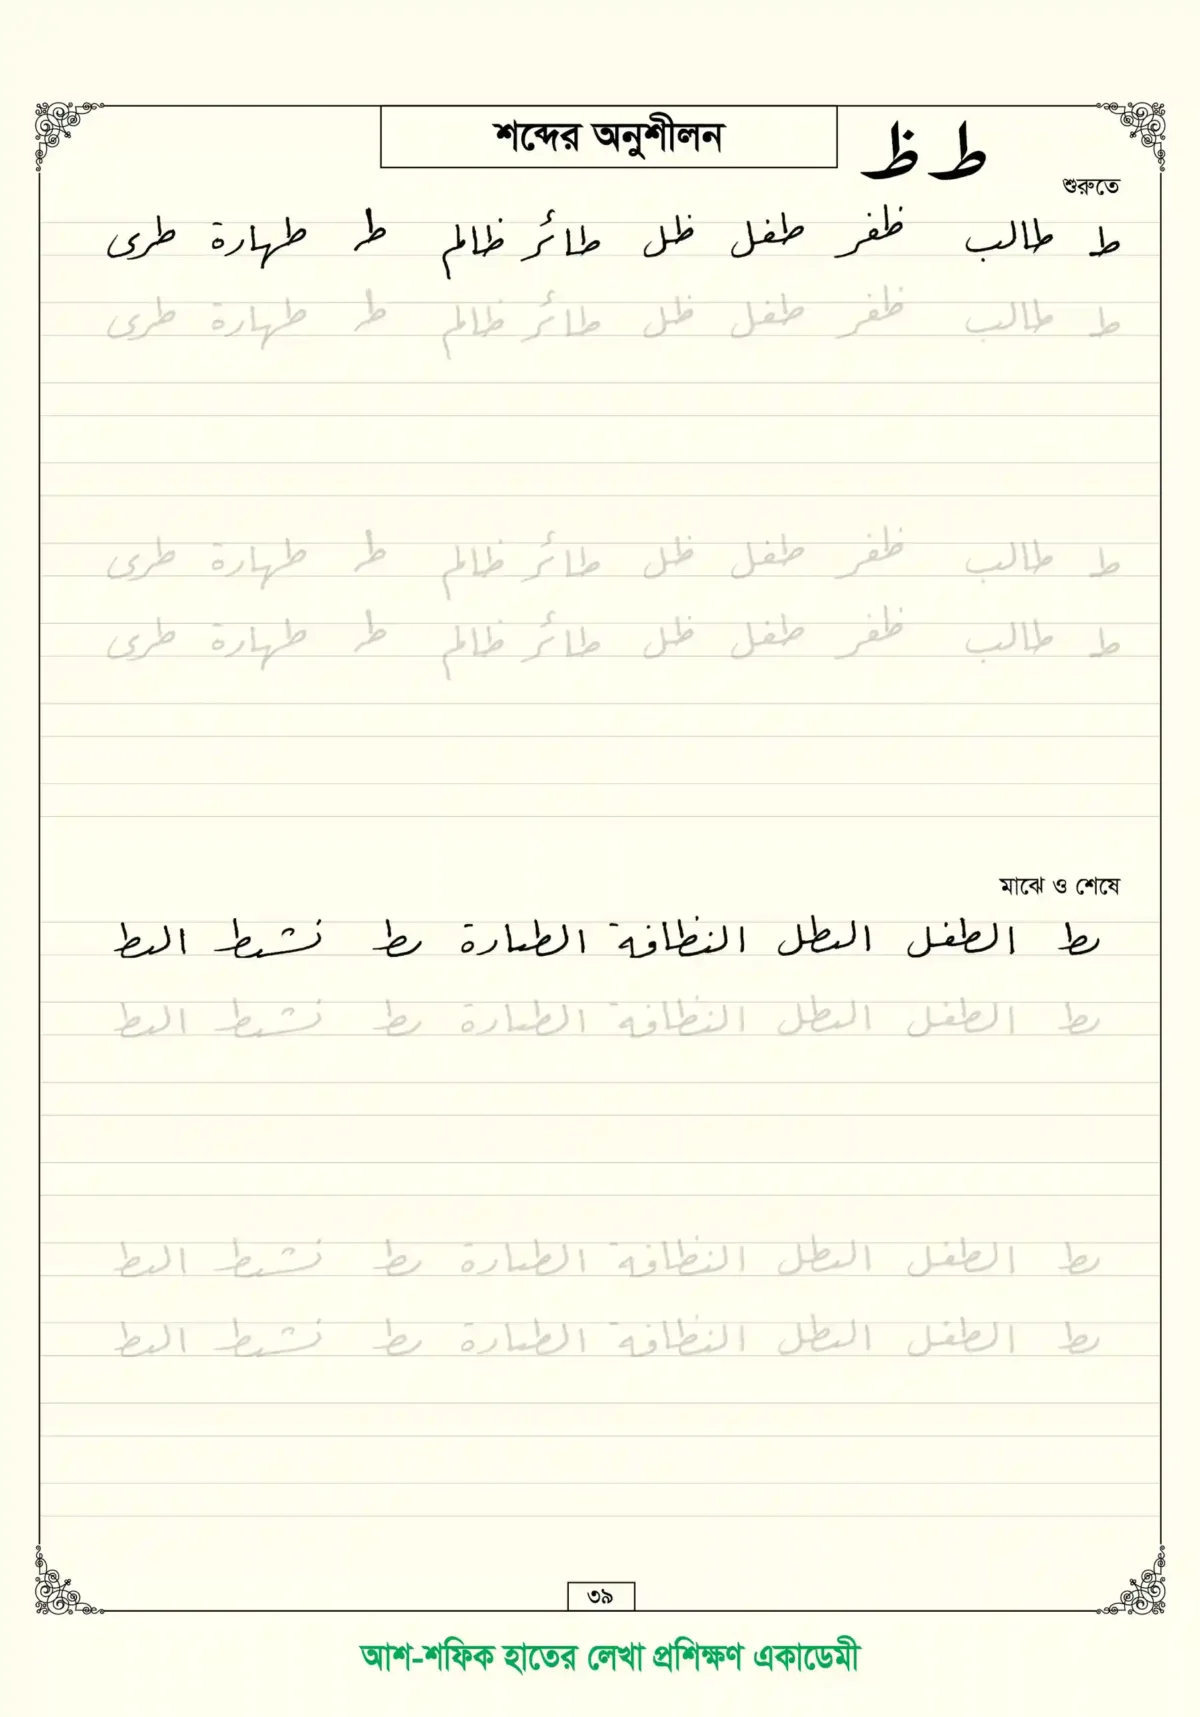 শব্দের অনুশীলন
ط ظ
শুরুতে
ط طالب ظفر طفل ظل طائر ظالم ط طهارة طرى
ط طالب ظفر طفل ظل طائر ظالم ط طهارة طرى
ط طالب ظفر طفل ظل طائر ظالم ط طهارة طرى
ط طالب ظفر طفل ظل طائر ظالم ط طهارة طرى
মাঝে ও শেষে
بط الطفل البطل النظافة الطيارة بط نشيط البط
بط الطفل البطل النظافة الطيارة بط نشيط البط
بط الطفل البطل النظافة الطيارة بط نشيط البط
بط الطفل البطل النظافة الطيارة بط نشيط البط
৩৯
আশ-শফিক হাতের লেখা প্রশিক্ষণ একাডেমী